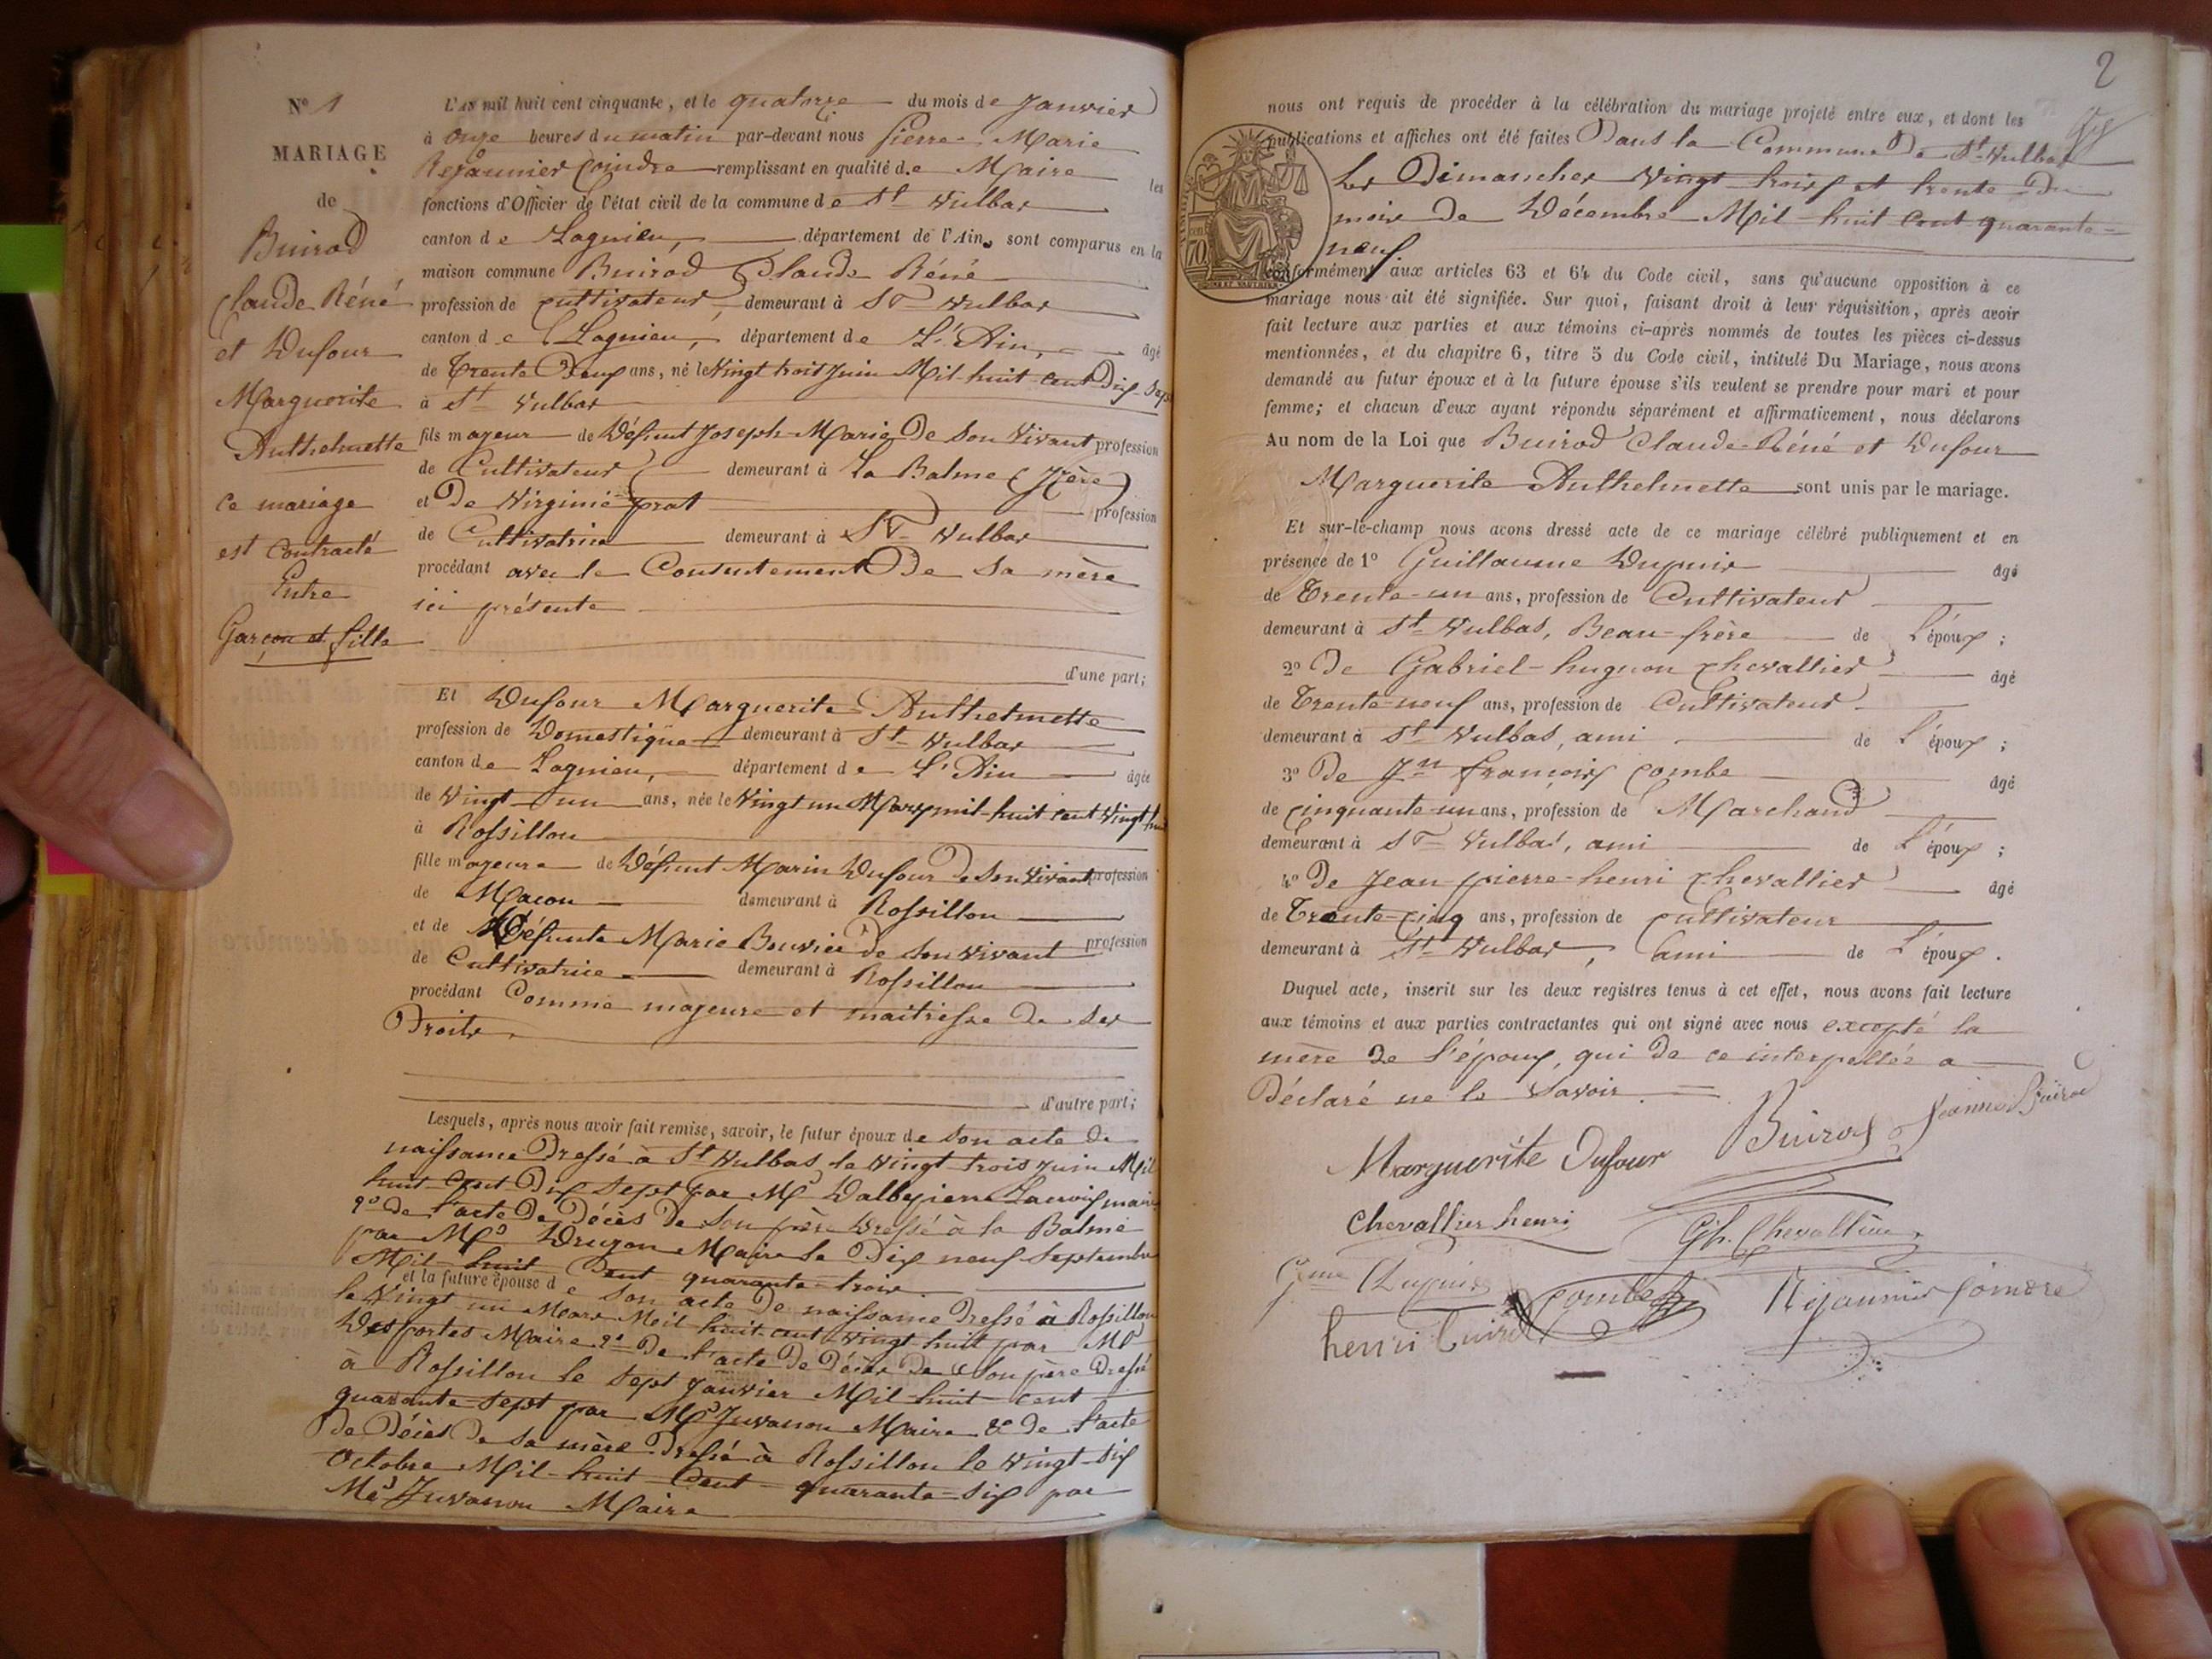 N° 1
MARIAGE
de
Buirod
Claude Réné
et Dufour
Marguerite
Anthelmette
ce mariage
est contracté
Entre
Garçon et fille
L'an mil huit cent cinquante, et le quatorze du mois de Janvier
à onze heures du matin par-devant nous Pierre Marie
Rejaunier Coindre remplissant en qualité de Maire les
fonctions d'Officier de l'état civil de la commune de St Vulbas
canton de Lagnieu, département de l'Ain, sont comparus en la
maison commune Buirod Claude Réné
profession de cultivateur, demeurant à St Vulbas
canton de Lagnieu, département de L'Ain, âgé
de Trente Deux ans, né le Vingt trois Juin Mil huit cent Dix Sept
à St Vulbas
fils majeur de Défunt Joseph Marie De Son Vivant profession
de Cultivateur demeurant à La Balme (Izère)
et De Virginie prat profession
de Cultivatrice demeurant à St Vulbas
procédant avec le Consentement De Sa mère
ici présente
d'une part;
Et Dufour Marguerite Anthelmette
profession de Domestique demeurant à St Vulbas
canton de Lagnieu, département de L'Ain âgée
de Vingt un ans, née le Vingt un Mars mil huit cent Vingt huit
à Rossillon
fille majeure de Défunt Marin Dufour De Son Vivant profession
de Maçon demeurant à Rossillon
et de Défunte Marie Bouvier De Son Vivant profession
de Cultivatrice demeurant à Rossillon
procédant Comme majeure et maitresse De Ses
Droits,
d'autre part;
Lesquels, après nous avoir fait remise, savoir, le futur époux de Son acte De
naissance Dressé à St Vulbas le Vingt trois Juin Mil
huit cent Dix Sept par Mr Lacroix maire
2° de l'acte De Décès De Son père Dressé à la Balme
par Mr Drugon Maire le Dix neuf Septembre
Mil huit Cent quarante trois
et la future épouse de Son acte De naissance Dressé à Rossillon
le Vingt un Mars Mil huit cent Vingt huit par Mr
Desportes Maire 2° De l'acte De Décès De Son père Dressé
à Rossillon le Sept Janvier Mil huit cent
quarante Sept par Mr Juvanon Maire & de l'acte
De Décès De Sa mère Dressé à Rossillon le Vingt Six
Octobre Mil huit Cent quarante Six par
Mr Juvanon Maire
2
nous ont requis de procéder à la célébration du mariage projeté entre eux, et dont les
publications et affiches ont été faites Dans la Commune De St Vulbas
Les Dimanches Vingt trois et trente Du
mois De Décembre Mil huit cent quarante
neuf
conformément aux articles 63 et 64 du Code civil, sans qu'aucune opposition à ce
mariage nous ait été signifiée. Sur quoi, faisant droit à leur réquisition, après avoir
fait lecture aux parties et aux témoins ci-après nommés de toutes les pièces ci-dessus
mentionnées, et du chapitre 6, titre 5 du Code civil, intitulé Du Mariage, nous avons
demandé au futur époux et à la future épouse s'ils veulent se prendre pour mari et pour
femme; et chacun d'eux ayant répondu séparément et affirmativement, nous déclarons
Au nom de la Loi que Buirod Claude Réné et Dufour
Marguerite Anthelmette sont unis par le mariage.
Et sur-le-champ nous avons dressé acte de ce mariage célébré publiquement et en
présence de 1° Guillaume Dupuis âgé
de Trente un ans, profession de Cultivateur
demeurant à St Vulbas, Beau-frère de L'époux;
2° De Gabriel hugnon Chevallier âgé
de Trente neuf ans, profession de Cultivateur
demeurant à St Vulbas, ami de L'époux;
3° De Jn françois Combe âgé
de Cinquante un ans, profession de Marchand
demeurant à St Vulbas, ami de L'époux;
4° De Jean pierre henri Chevallier âgé
de Trente Cinq ans, profession de cultivateur
demeurant à St Vulbas, ami de L'époux.
Duquel acte, inscrit sur les deux registres tenus à cet effet, nous avons fait lecture
aux témoins et aux parties contractantes qui ont signé avec nous excepté la
mère De l'époux, qui De ce interpellée a
Déclaré ne le Savoir.
Marguerite Dufour Buirod Jeanne Buirod
Chevallier henri Gh. Chevallier
Gme Dupuis Combe Rejaunier Coindre
henri Buirod